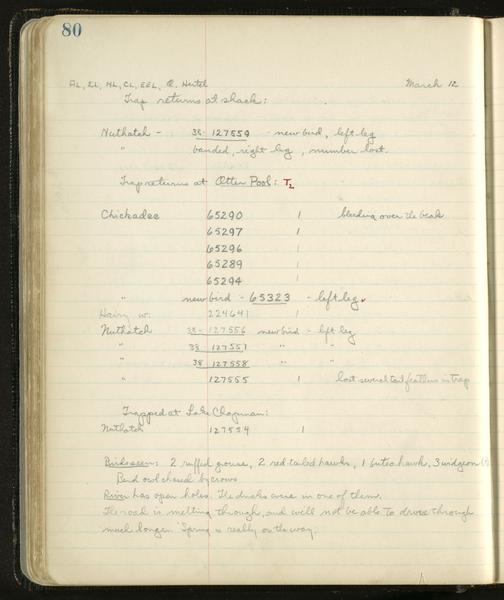 80
AL, EL, NL, CL, EEL, R. Hertel March 12
Trap returns at shack:
Nuthatch - 38-127559 - new bird, left leg
" banded, right leg, number lost.
Trap returns at Otter Pool: T2
Chickadee 65290 1 bleeding over the beak
65297 1
65296 1
65289 1
65294 1
" new bird - 65323 - left leg
Hairy w. 224641 1
Nuthatch 38-127556 new bird - left leg
" 38 127557 " "
" 38 127558 " "
" 127555 1 lost several tail feathers in trap
Trapped at Lake Chapman:
Nuthatch 127554 1
Birds seen: 2 ruffed grouse, 2 red tailed hawks, 1 buteo hawk, 3 widgeon (?)
Bard owl chased by crows
River has open holes. The ducks were in one of them.
The road is melting through, and will not be able to drive through
much longer. Spring is really on the way.